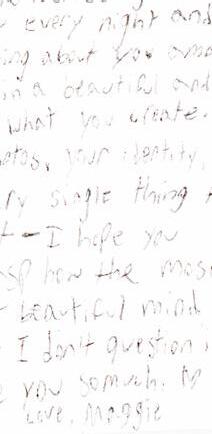 every night and
ing about you
in a beautiful and
what you create.
your identity,
ry single thing
t - I hope you
sp how the mos
beautiful mind
I don't question i
you somuch.
Love, Maggie